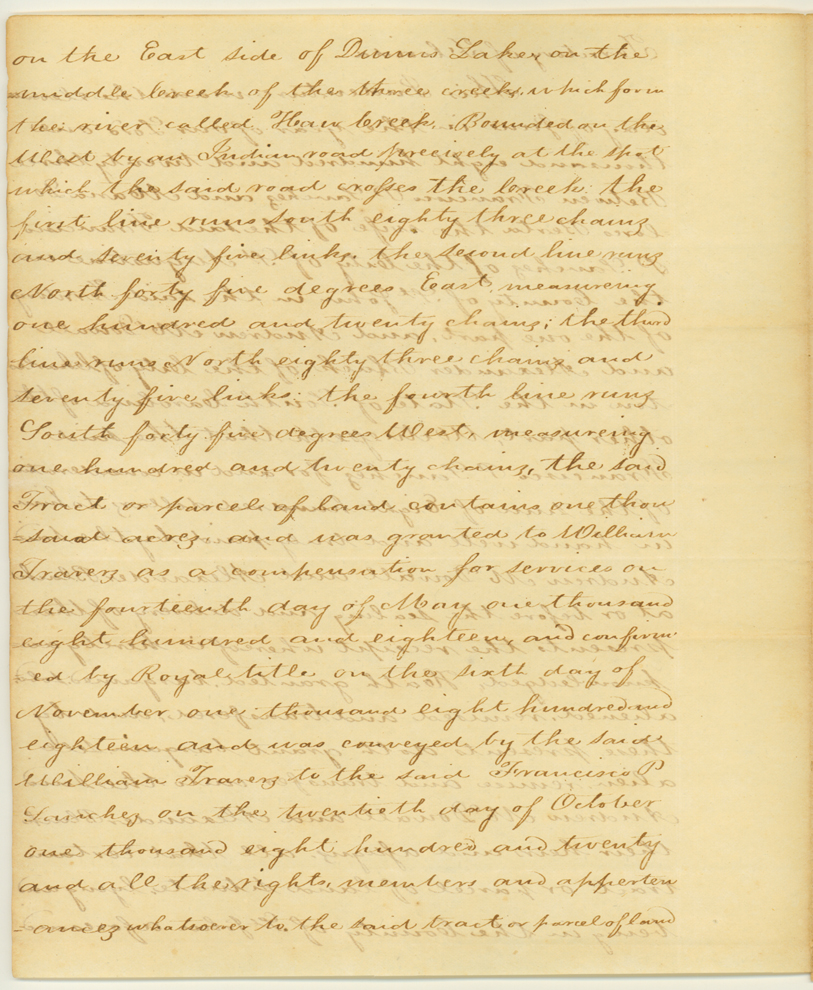 on the East side of Dunns Lake, on the
=middle Creek of the three creeks, which form
the river called Haw Creek, Bounded on the
West by an Indian road precisely at the spot
which the said road crosses the Creek: the
first line runs South eighty three chains
and seventy five links. the second line runs
North forty five degrees East, measureing
one hundred and twenty chains; the third
line runs North eighty three chains and
seventy five links: the fourth line runs
South forty five degrees West, measureing
one hundred and twenty chains, the said
Tract or parcel of land contains one thou
=sand acres and was granted to William
Travers as a compensation for services on
the fourteenth day of May one thousand
eight hundred and eighteen, and confirm
=ed by Royal title on the sixth day of
November one thousand eight hundred and
eighteen and was conveyed by the said
William Travers to the said Francisco P
Sanchez on the twentieth day of October
one thousand eight hundred and twenty
and all the rights, members and apperten
=ances whatsoever to the said tract or parcel of land